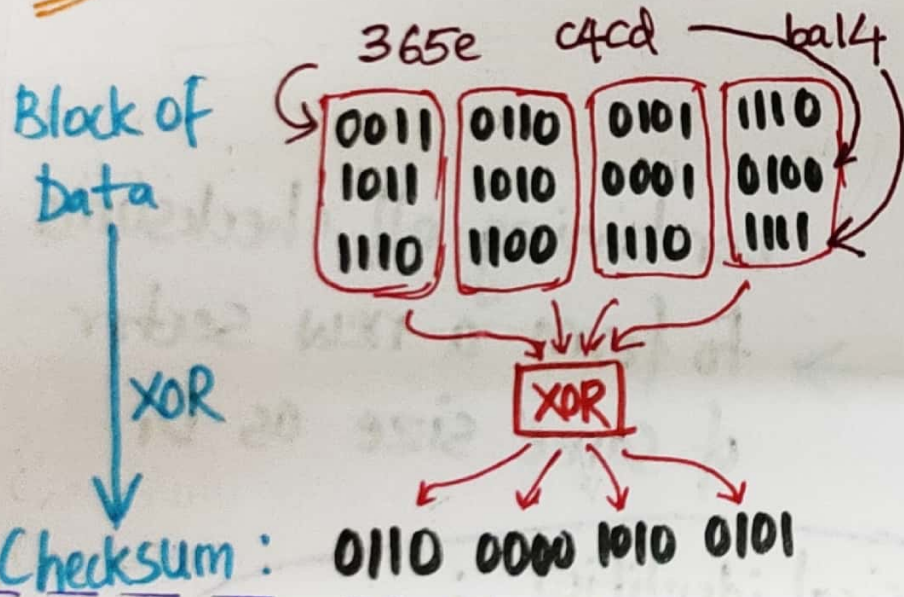 365e c4cd ba14
Block of
Data
0011 0110 0101 1110
1011 1010 0001 0100
1110 1100 1110 1111
XOR
XOR
Checksum: 0110 0000 1010 0101